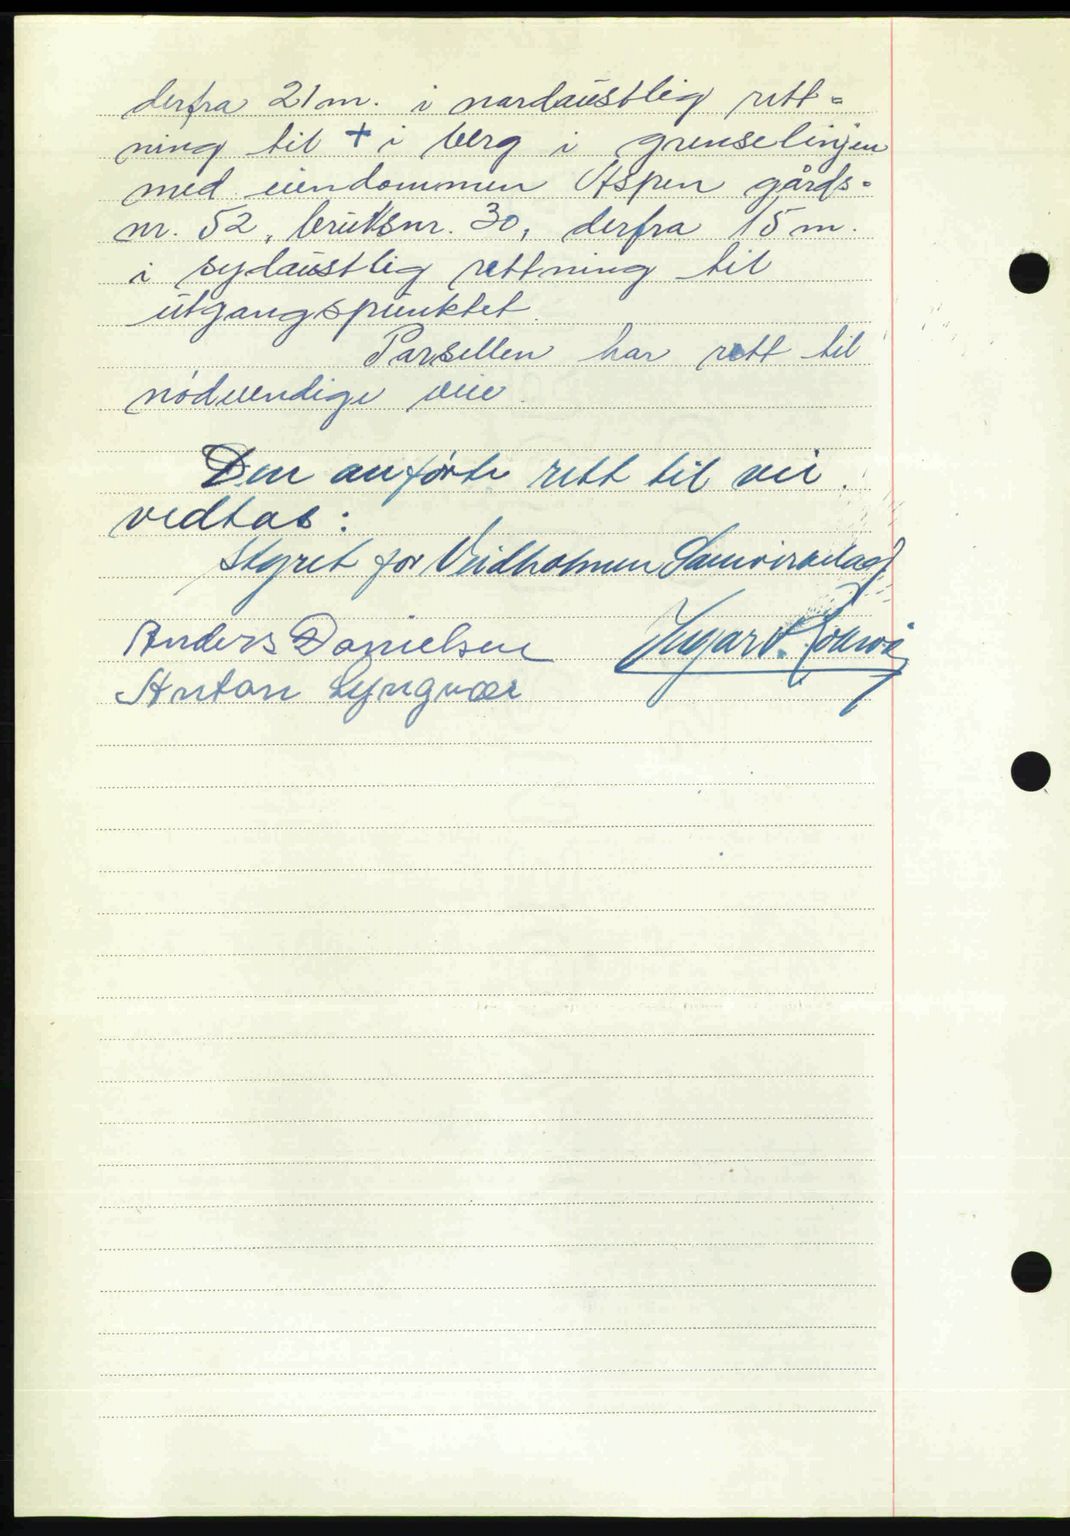 derfra 21 m. i nordaustlig rett=
ning til + i berg i grenselinjen
med eiendommen Aspen gårds=
nr. 52, bruksnr. 30, derfra 15 m.
i sydaustlig rettning til
utgangspunktet.
Parsellen har rett til
nødvendige veie.
Den anførte rett til vei
vedtas:
Styret for Veidholmen Samvirkelag
Anders Danielsen Ingar
Anton Lyngvær